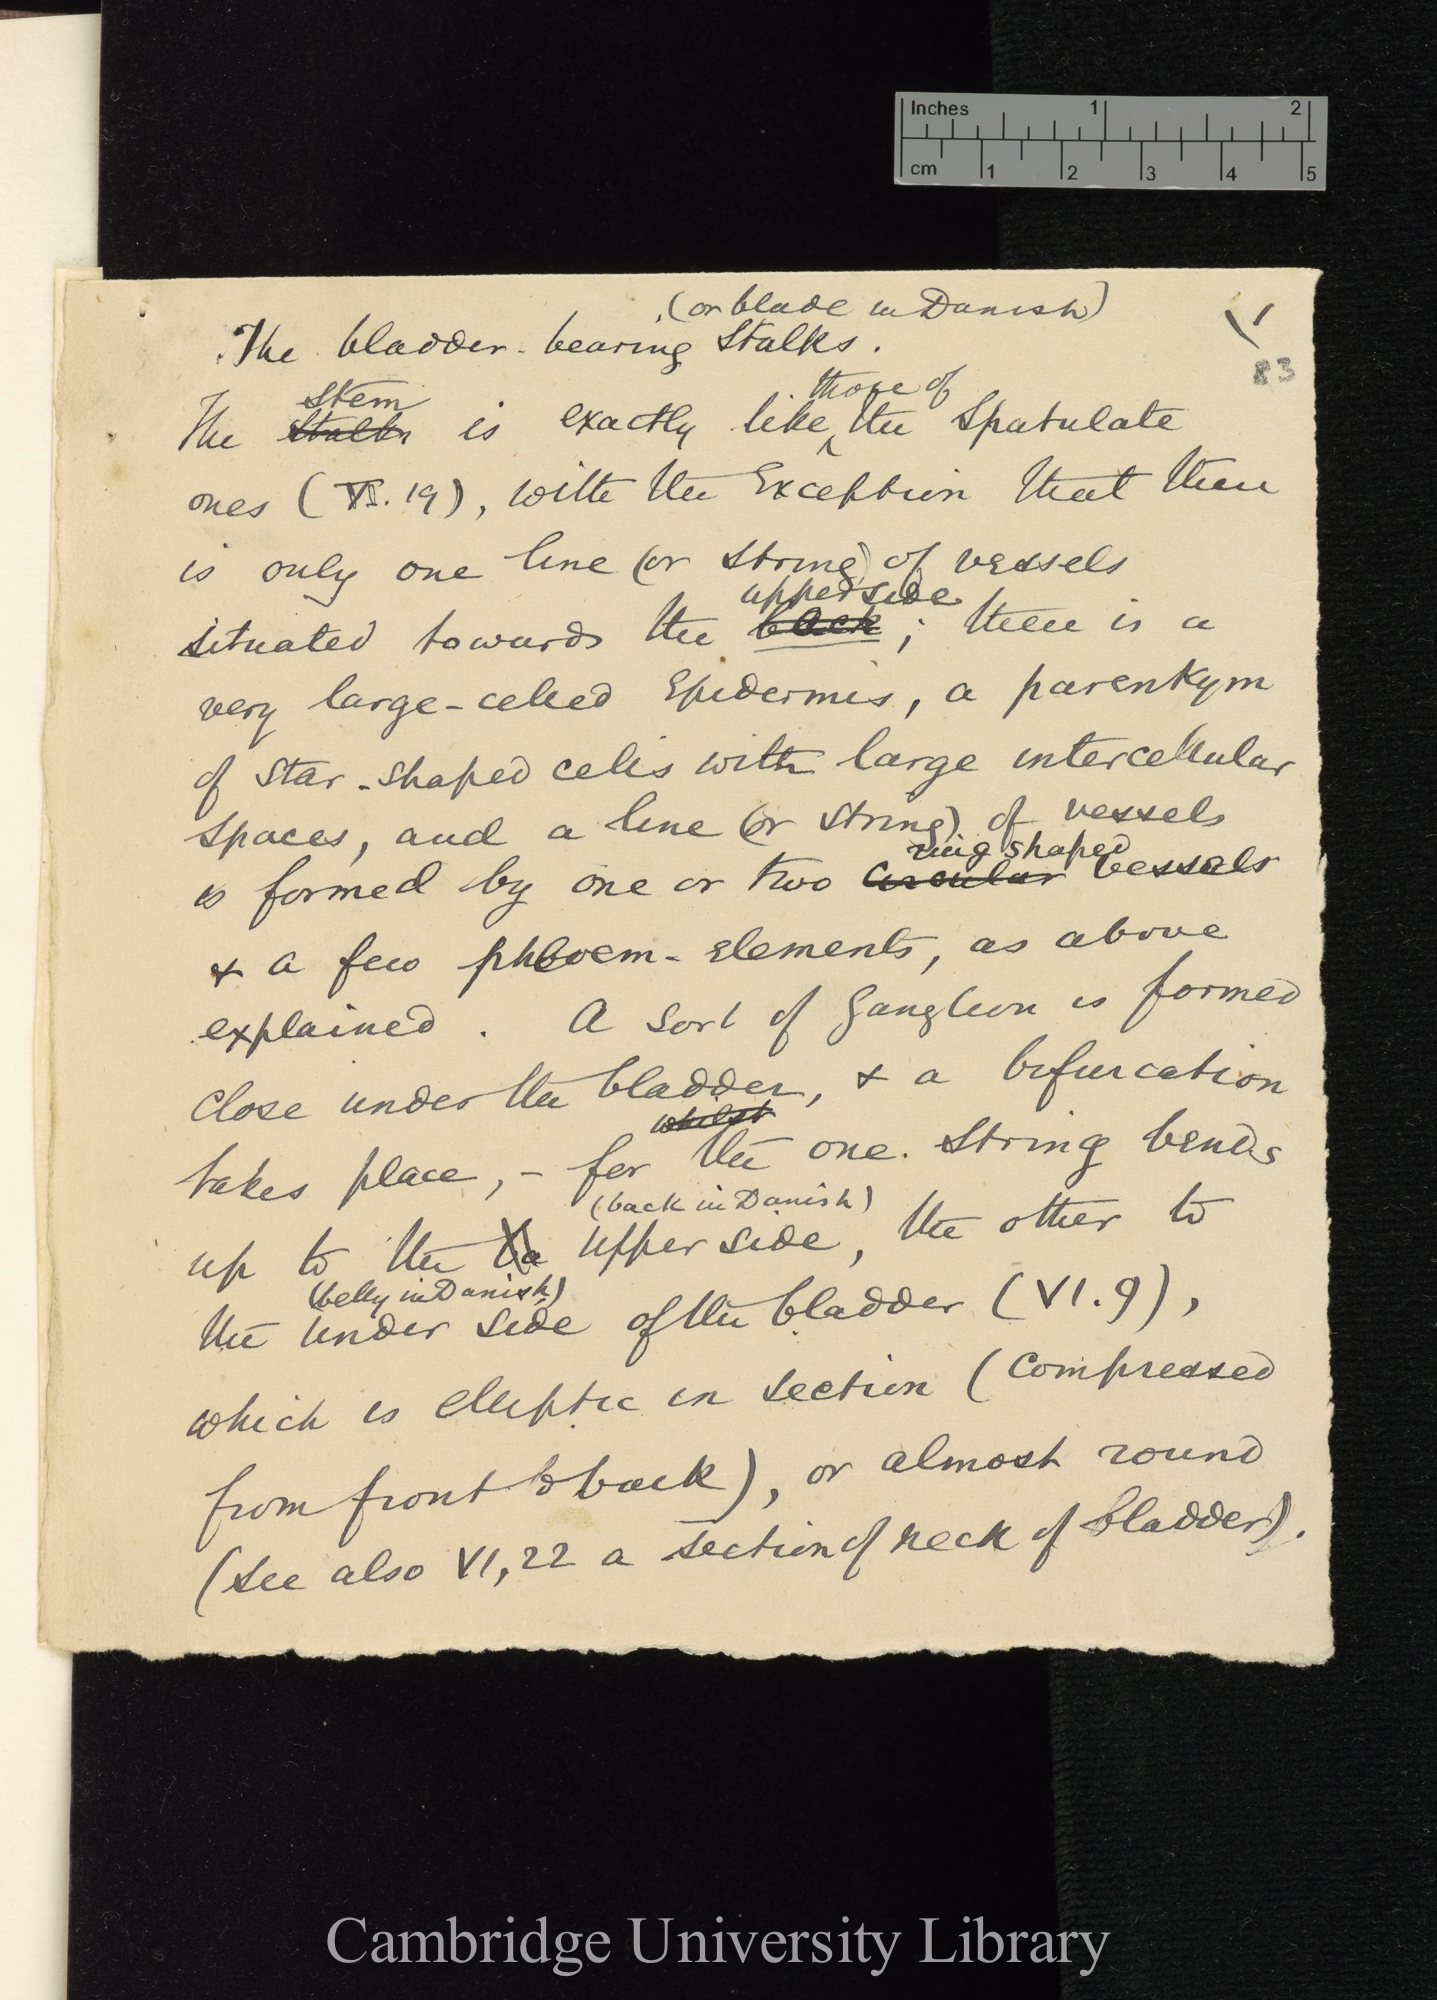 Inches 1 2
cm 1 2 3 4 5
(or blade in Danish)
The bladder-bearing Stalks.
83
stem those of
The Stalks is exactly like the Spatulate
ones (VI. 19), with the Exception that there
is only one line (or string) of vessels
upper side
situated towards the back; there is a
very large-celled Epidermis, a parenkym
of star-shaped cells with large intercellular
spaces, and a line (or string) of vessels
ring shaped
is formed by one or two circular vessels
& a few phloem-elements, as above
explained. A sort of Ganglion is formed
close under the bladder, & a bifurcation
whilst
takes place, - for the one string bends
(back in Danish)
up to the ba upper side, the other to
(belly in Danish)
the under side of the bladder (VI.9),
which is elliptic in section (compressed
from front to back), or almost round
(see also VI, 22 a section of neck of bladder).
Cambridge University Library